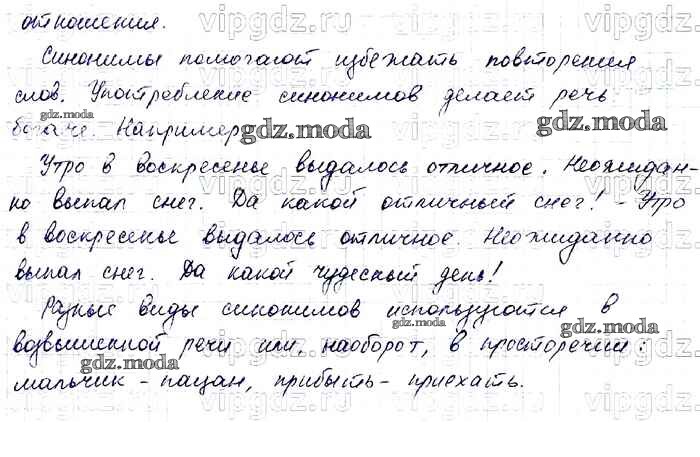 отношения.
Синонимы помогают избежать повторения
слов. Употребление синонимов делает речь
богаче. Например
Утро в воскресенье выдалось отличное. Неожидан-
но выпал снег. Да какой отличный снег! - Утро
в воскресенье выдалось отличное. Неожиданно
выпал снег. Да какой чудесный день!
Разные виды синонимов используются в
возвышенной речи или, наоборот, в просторечии:
мальчик - пацан, прибыть - приехать.
vipgdz.ru
gdz.moda